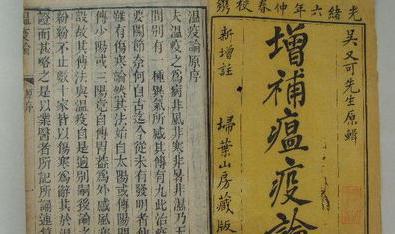 光緒六年仲春校鐫
吳又可先生原輯
增補瘟疫論
新增註
掃葉山房藏版
溫疫論原序
夫溫疫之為病非風非寒非暑非濕乃天
地間別有一種異氣所感其傳有九此治疫
緊要關節奈何自古迄今從未有發明者仲
景雖有傷寒論然其法始自太陽或傳陽明
或傳少陽或三陽竟自傳胃蓋為外感風寒
而設故其法與溫疫自是逈別嗣後論之者
紛紛不止數十家皆以傷寒為辭其於溫疫
證而甚略之是以業醫者所記所誦連篇